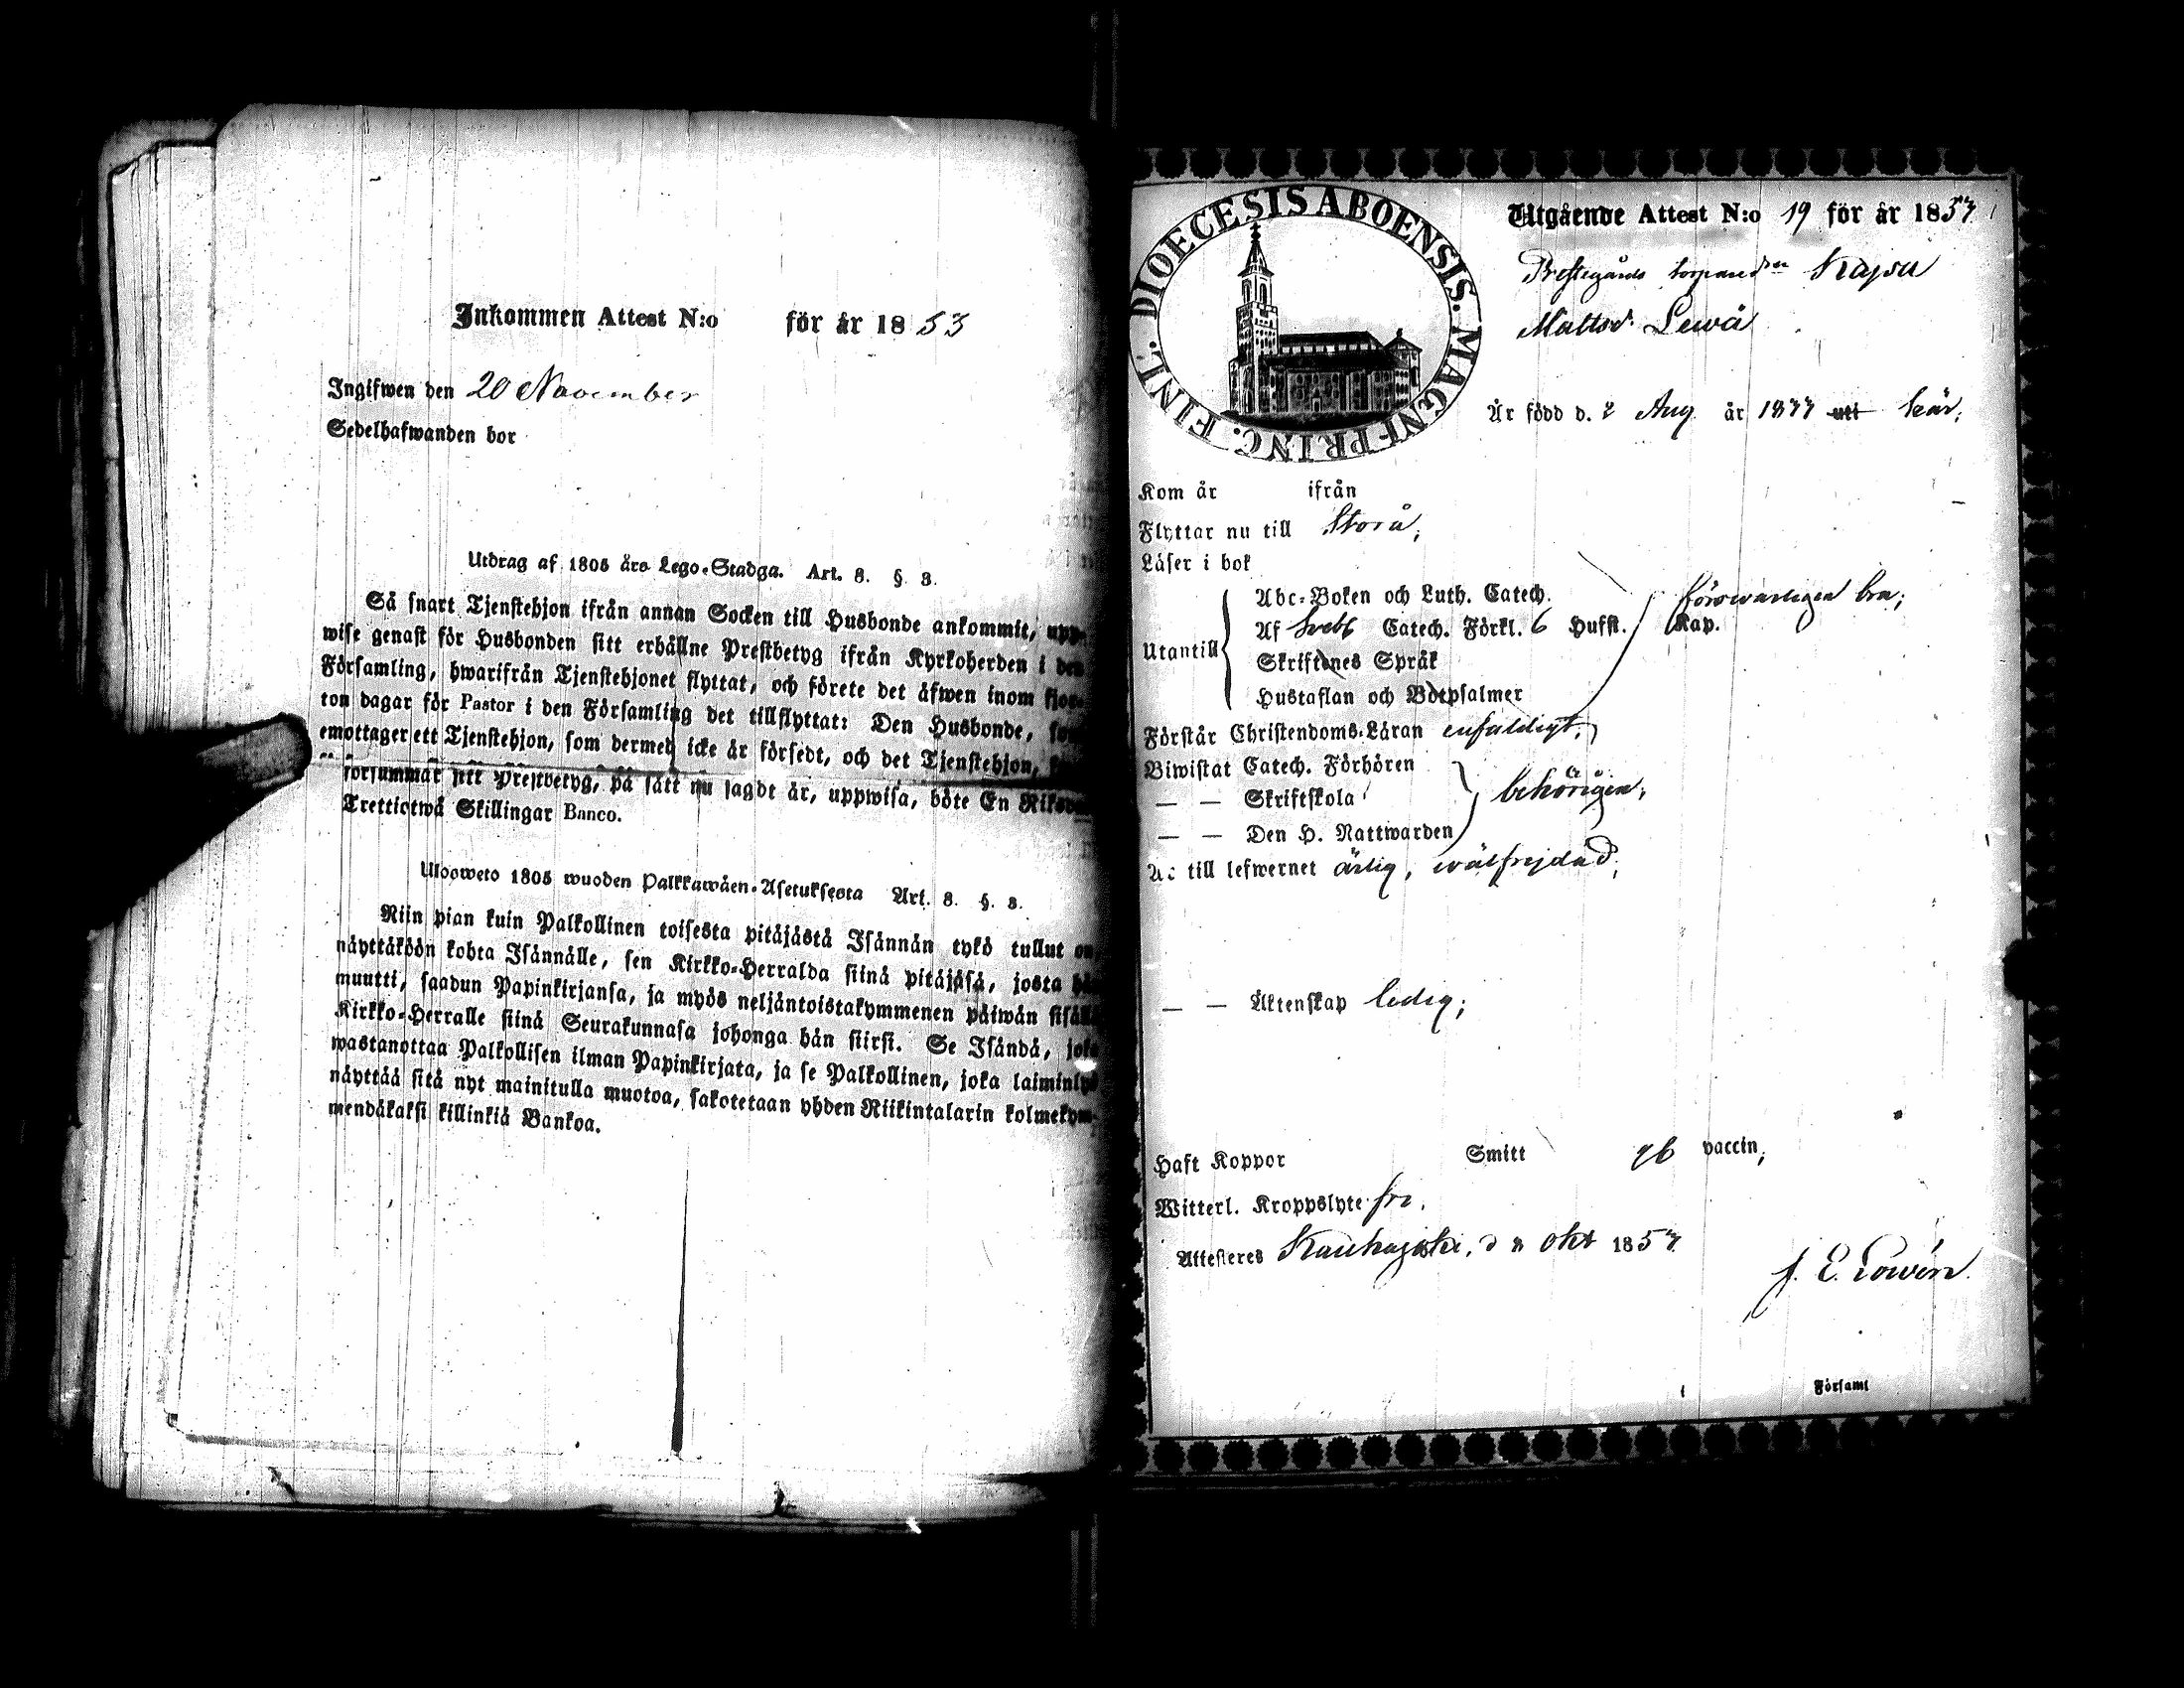 Inkommen Attest N:o för år 1853
Ingifwen den 20 November
Sedelhafwanden bor
Utdrag af 1805 års Lego-Stadga. Art. 8. §. 3.
Så snart Tjenstehjon ifrån annan Socken till Husbonde ankommit, upp-
wise genast för Husbonden sitt erhållne Prestbetyg ifrån Kyrkoherden i den
Församling, hwarifrån Tjenstehjonet flyttat, och förete det äfwen inom fjor-
ton dagar för Pastor i den Församling det tillflyttat: Den Husbonde, som
emottager ett Tjenstehjon, som dermed icke är försedt, och det Tjenstehjon,
försummar sitt Prestbetyg, på sätt nu sagdt är, uppwisa, böte En Riksd.
Trettiotwå Skillingar Banco.
Ulosweto 1805 wuoden Palkkawäen-Asetuksesta Art. 8. §. 3.
Niin pian kuin Palkollinen toisesta pitäjästä Isännän tykö tullut on
näyttäköön kohta Isännälle, sen Kirkko-Herralda siinä pitäjäsä, josta hän
muutti, saadun Papinkirjansa, ja myös neljäntoistakymmenen päiwän sisällä
Kirkko-Herralle siinä Seurakunnasa johonga hän siirsi. Se Isändä, joka
wastanottaa Palkollisen ilman Papinkirjata, ja se Palkollinen, joka laiminlyö
näyttää sitä nyt mainitulla muotoa, sakotetaan yhden Riikintalarin kolmekym-
mendäkaksi killinkiä Bankoa.
DIOECESIS ABOENSIS. MAGNI PRINC. FINL.
Utgående Attest N:o 19 för år 1853
Prestegårds torpare dren Kajsa
Mattsd. Lewä
Är född d. 2 Aug. år 1833 utt här;
Kom år ifrån
Flyttar nu till Storå;
Läser i bok
Abc-Boken och Luth. Catech. förswarligen bra;
Af Sveb Catech. Förkl. 6 Hufst. Kap.
Utantill
Skriftenes Språk
Hustaflan och Botpsalmer
Förstår Christendoms-Läran enfaldigt;
Biwistat Catech. Förhören
— — Skriftskola behörigen;
— — Den H. Nattwarden
Är till lefwernet ärlig, wälfrejdad;
— — Äktenskap ledig;
Haft Koppor Smitt vaccin;
Witterl. Kroppslyte fri.
Attesteras Kauhajoki, d Okt 1853
J. E. Lowén
Församl